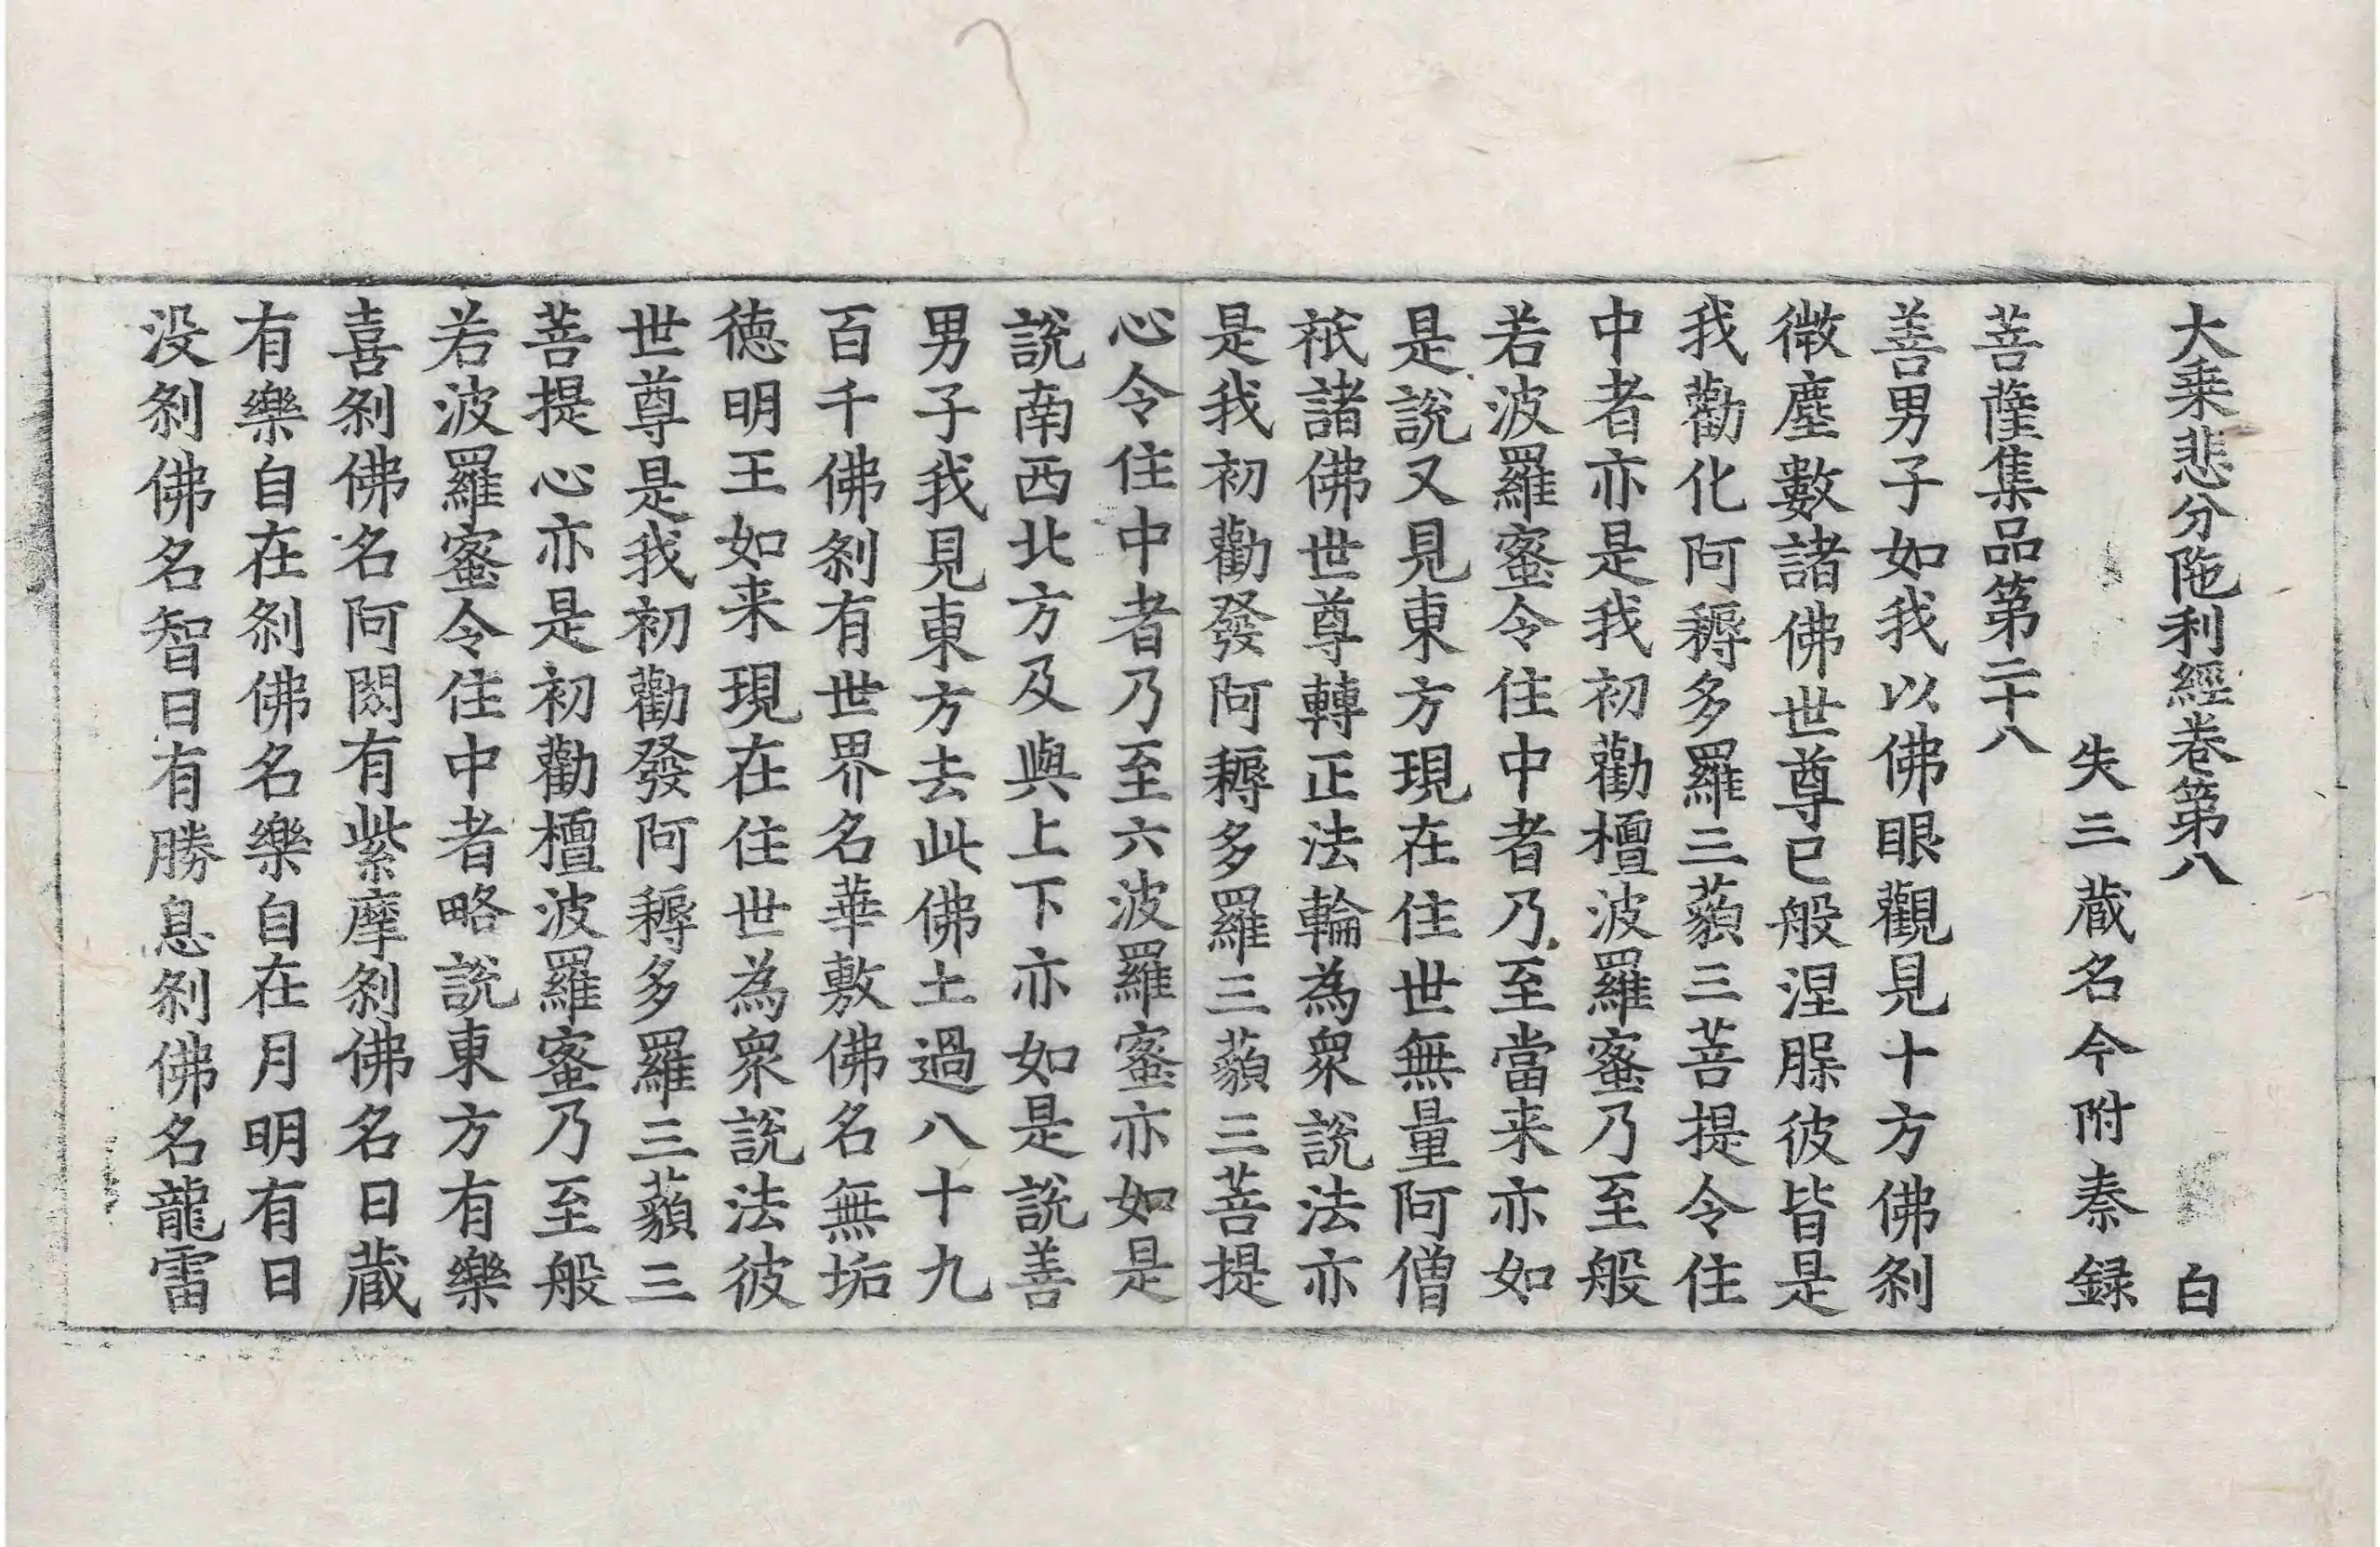 大乗悲分陁利經卷第八　白
失三蔵名今附秦録
菩薩集品第二十八
善男子如我以佛眼觀見十方佛刹
微塵數諸佛世尊已般涅脲彼皆是
我勸化阿耨多羅三藐三菩提令住
中者亦是我初勸檀波羅蜜乃至般
若波羅蜜令住中者乃至當来亦如
是說又見東方現在住世無量阿僧
祇諸佛世尊轉正法輪為衆說法亦
是我初勸發阿耨多羅三藐三菩提
心令住中者乃至六波羅蜜亦如是
說南西北方及與上下亦如是說善
男子我見東方去此佛土過八十九
百千佛刹有世界名華敷佛名無垢
徳明王如来現在住世為衆說法彼
世尊是我初勸發阿耨多羅三藐三
菩提心亦是初勸檀波羅蜜乃至般
若波羅蜜令住中者略說東方有樂
喜刹佛名阿閦有紫摩刹佛名日蔵
有樂自在刹佛名樂自在月明有日
没刹佛名智日有勝息刹佛名龍雷